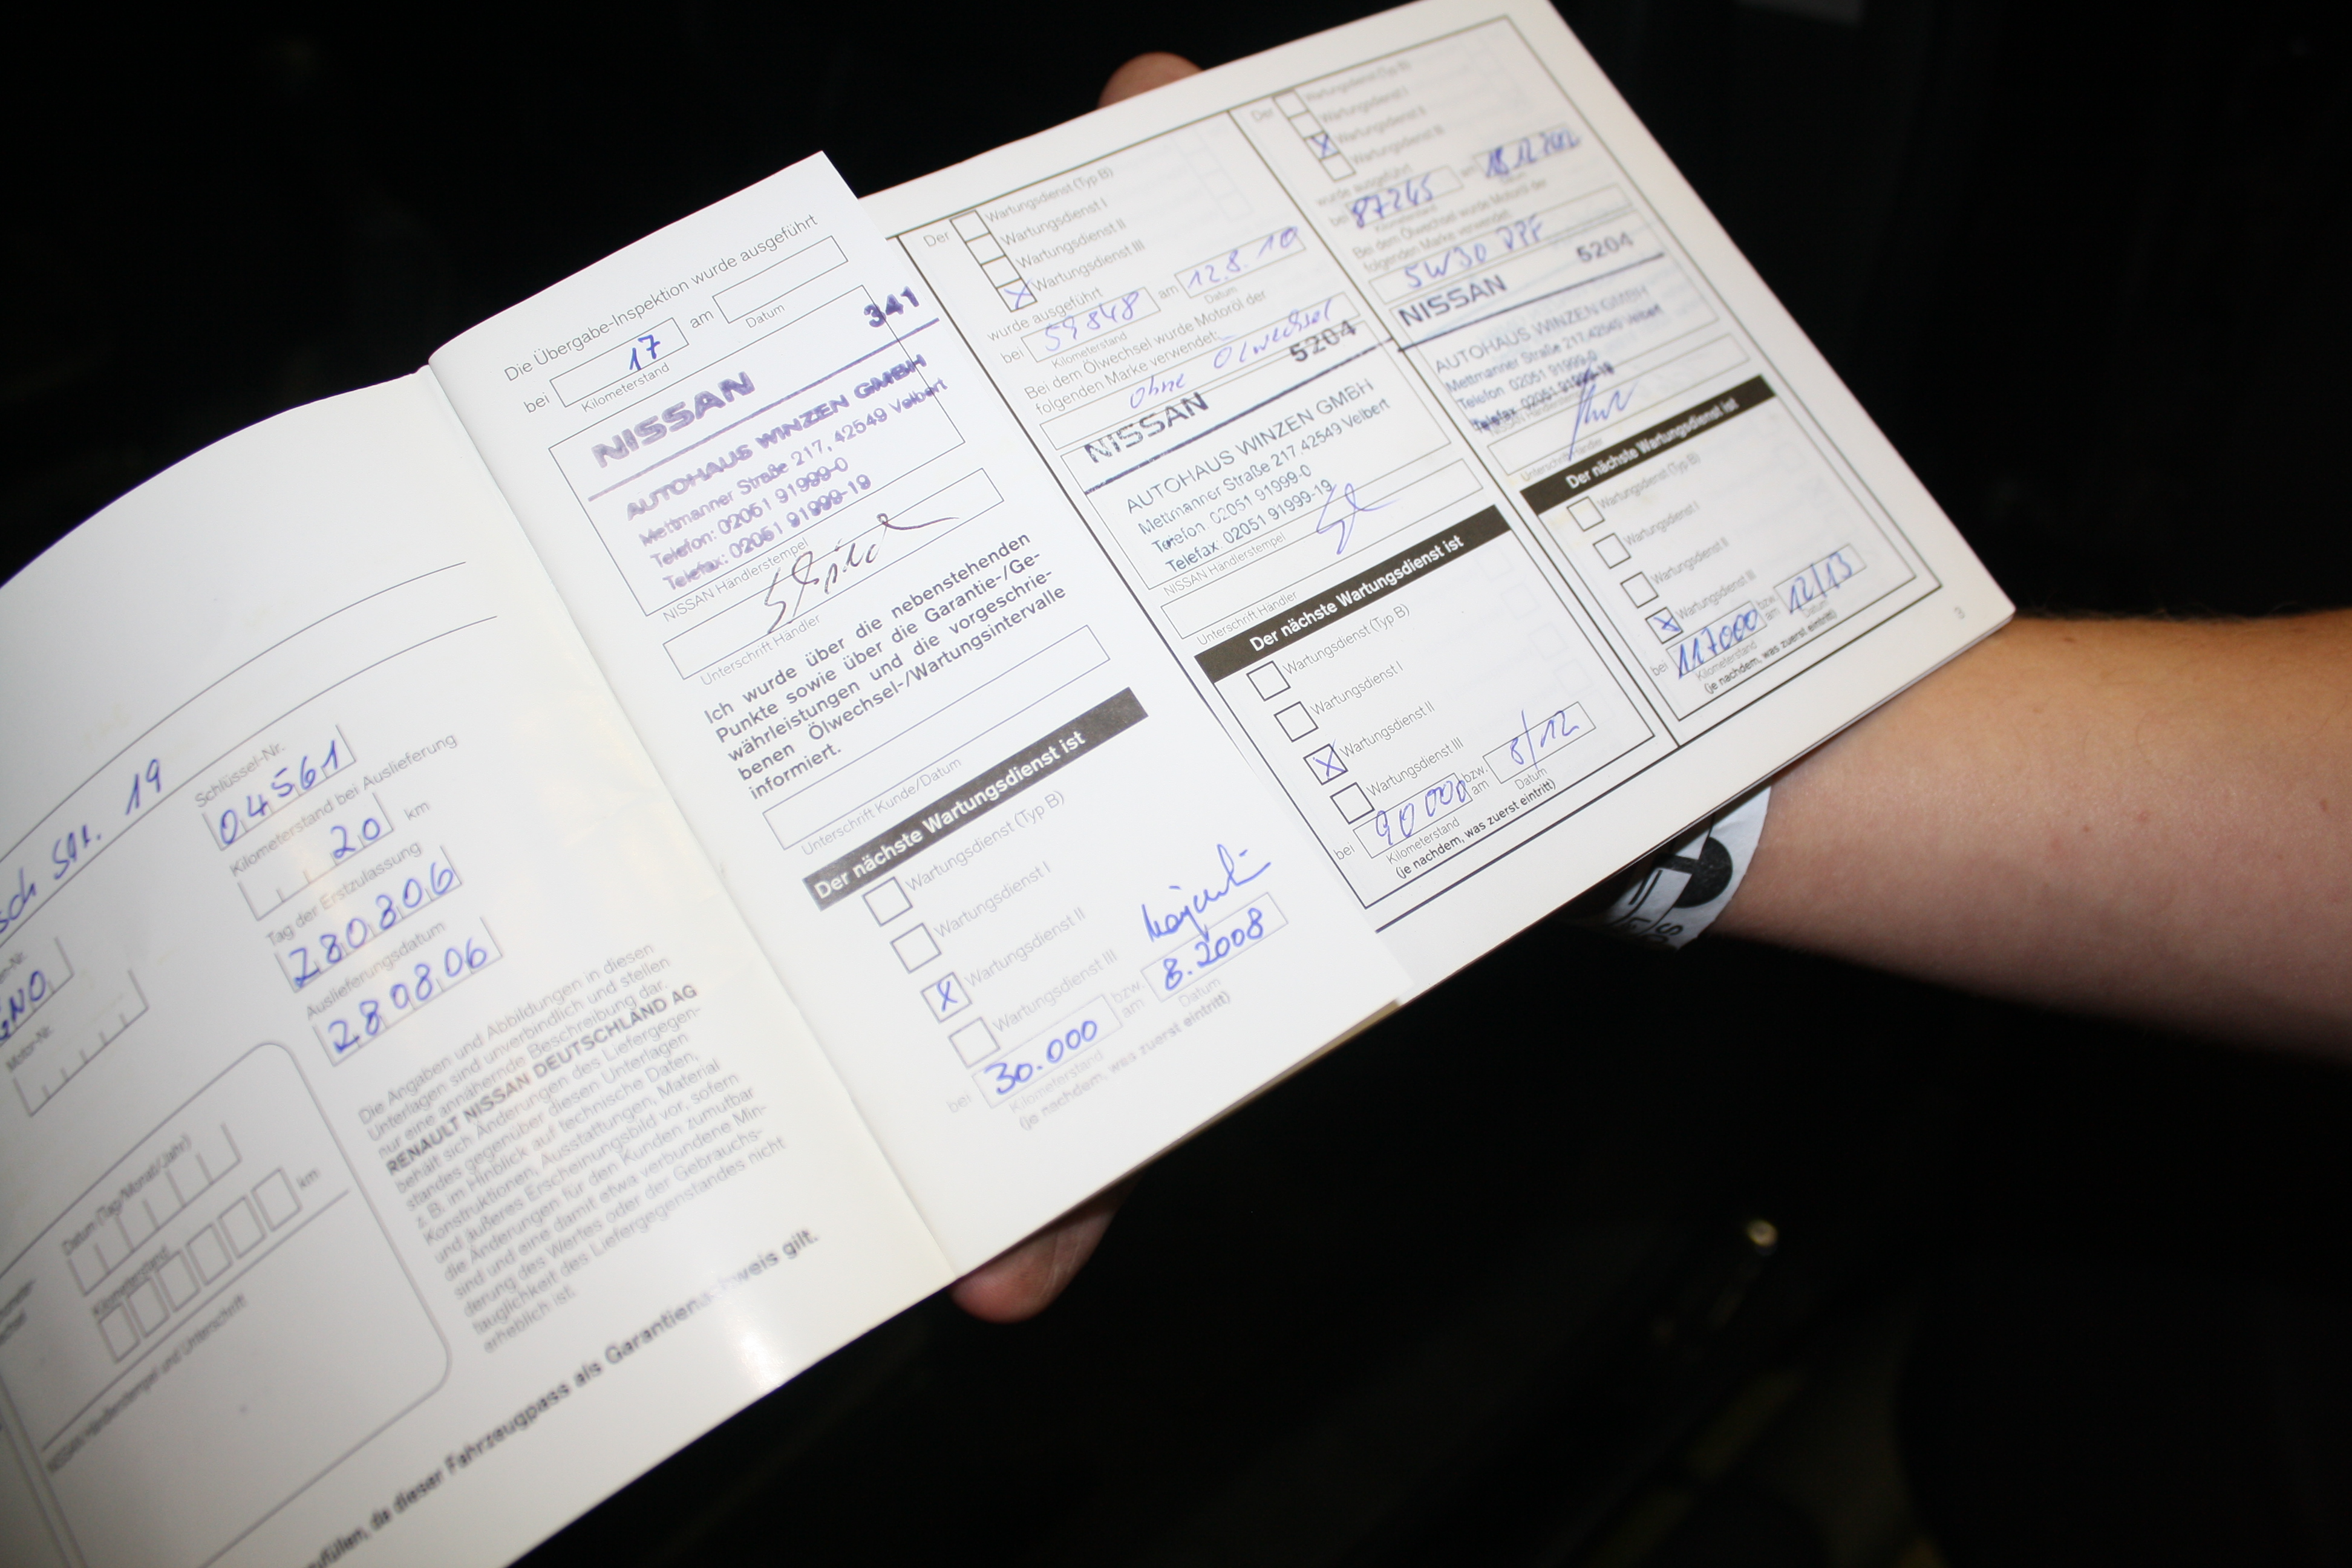 sch Str. 19
Schlüssel-Nr.
04561
Kilometerstand bei Auslieferung
20 km
Tag der Erstzulassung
280806
Auslieferungsdatum
280806
Motor-Nr.
Datum (Tag/Monat/Jahr)
Kilometerstand
km
NISSAN Händlerstempel und Unterschrift
Die Angaben und Abbildungen in diesen
Unterlagen sind unverbindlich und stellen
nur eine annähernde Beschreibung dar.
RENAULT NISSAN DEUTSCHLAND AG
behält sich Änderungen des Liefergegen-
standes gegenüber diesen Unterlagen
z. B. im Hinblick auf technische Daten,
Konstruktionen, Ausstattungen, Material
und äußeres Erscheinungsbild vor, sofern
die Änderungen für den Kunden zumutbar
sind und eine damit etwa verbundene Min-
derung des Wertes oder der Gebrauchs-
tauglichkeit des Liefergegenstandes nicht
erheblich ist.
da dieser Fahrzeugpass als Garantienachweis gilt.
Die Übergabe-Inspektion wurde ausgeführt
bei 17 am
Kilometerstand Datum
341
NISSAN
AUTOHAUS WINZEN GMBH
Mettmanner Straße 217, 42549 Velbert
Telefon: 02051 91999-0
Telefax: 02051 91999-19
NISSAN Händlerstempel
Unterschrift Händler
Ich wurde über die nebenstehenden
Punkte sowie über die Garantie-/Ge-
währleistungen und die vorgeschrie-
benen Ölwechsel-/Wartungsintervalle
informiert.
Unterschrift Kunde/Datum
Der nächste Wartungsdienst ist
Wartungsdienst (Typ B)
Wartungsdienst I
X Wartungsdienst II
Wartungsdienst III
bei 30.000 bzw. am 8.2008
Kilometerstand Datum
(je nachdem, was zuerst eintritt)
Der Wartungsdienst (Typ B)
Wartungsdienst I
Wartungsdienst II
X Wartungsdienst III
wurde ausgeführt
bei 59848 am 12.8.10
Kilometerstand Datum
Bei dem Ölwechsel wurde Motoröl der
folgenden Marke verwendet:
ohne Ölwechsel
5204
NISSAN
AUTOHAUS WINZEN GMBH
Mettmanner Straße 217 42549 Velbert
Telefon 02051 91999-0
Telefax 02051 91999-19
NISSAN Händlerstempel
Unterschrift Händler
Der nächste Wartungsdienst ist
Wartungsdienst (Typ B)
Wartungsdienst I
X Wartungsdienst II
Wartungsdienst III
bei 90000 bzw. am 8/12
Kilometerstand Datum
(je nachdem, was zuerst eintritt)
Der Wartungsdienst (Typ B)
Wartungsdienst I
X Wartungsdienst II
Wartungsdienst III
wurde ausgeführt
bei 87245 am 18.12.2012
Kilometerstand Datum
Bei dem Ölwechsel wurde Motoröl der
folgenden Marke verwendet:
5W30 DPF
5204
NISSAN
AUTOHAUS WINZEN GMBH
Mettmanner Straße 217 42549 Velbert
Telefon 02051 91999-0
Telefax 02051 91999-19
NISSAN Händlerstempel
Unterschrift Händler
Der nächste Wartungsdienst ist
Wartungsdienst (Typ B)
Wartungsdienst I
Wartungsdienst II
X Wartungsdienst III
bei 117000 bzw. am 12/13
Kilometerstand Datum
(je nachdem, was zuerst eintritt)
3